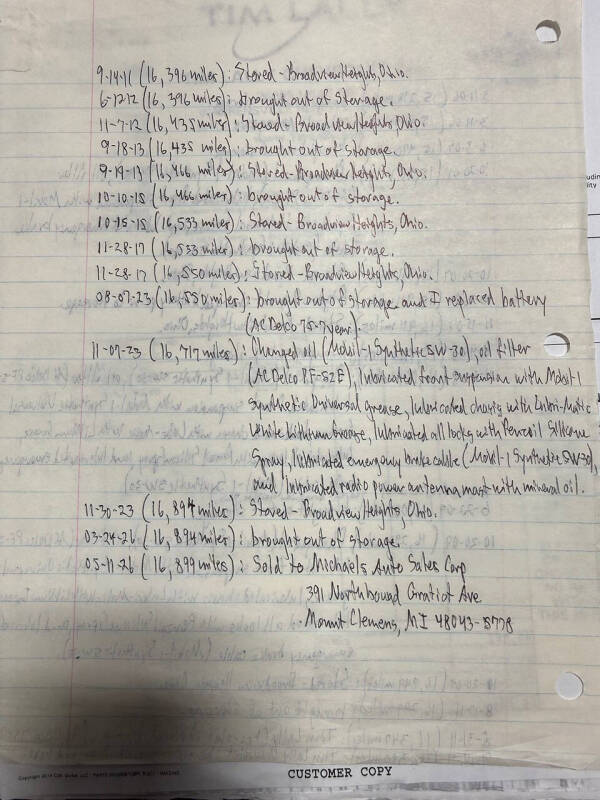 9-14-11 (16,396 miles): Stored-Broadview Heights, Ohio.
6-12-12 (16,396 miles): brought out of Storage.
11-7-12 (16,435 miles): Stored-Broadview Heights, Ohio
9-18-13 (16,435 miles): brought out of storage.
9-19-13 (16,466 miles): Stored-Broadview Heights, Ohio.
10-10-15 (16,466 miles): brought out of storage.
10-15-15 (16,533 miles): Stored-Broadview Heights, Ohio.
11-28-17 (16,533 miles): brought out of storage.
11-28-17 (16,550 miles): Stored-Broadview Heights, Ohio.
08-07-23 (16,550 miles): brought out of storage and I replaced battery
(AC Delco 75-7 year).
11-07-23 (16,717 miles): Changed oil (Mobil-1 Synthetic 5W-30), oil filter
(AC Delco PF-52E), lubricated front suspension with Mobil-1
Synthetic Universal grease, lubricated chassis with Lubri-Matic
White Lithium Grease, lubricated all locks with Penzoil Silicone
Spray, lubricated emergency brake cable (Mobil-1 Synthetic 5W-30),
and lubricated radio power antenna mast with mineral oil.
11-30-23 (16,894 miles): Stored-Broadview Heights, Ohio.
03-24-26 (16,894 miles): brought out of storage
05-11-26 (16,899 miles): Sold to Michaels Auto Sales Corp
391 Northbound Gratiot Ave
Mount Clemens, MI 48043-5778
CUSTOMER COPY